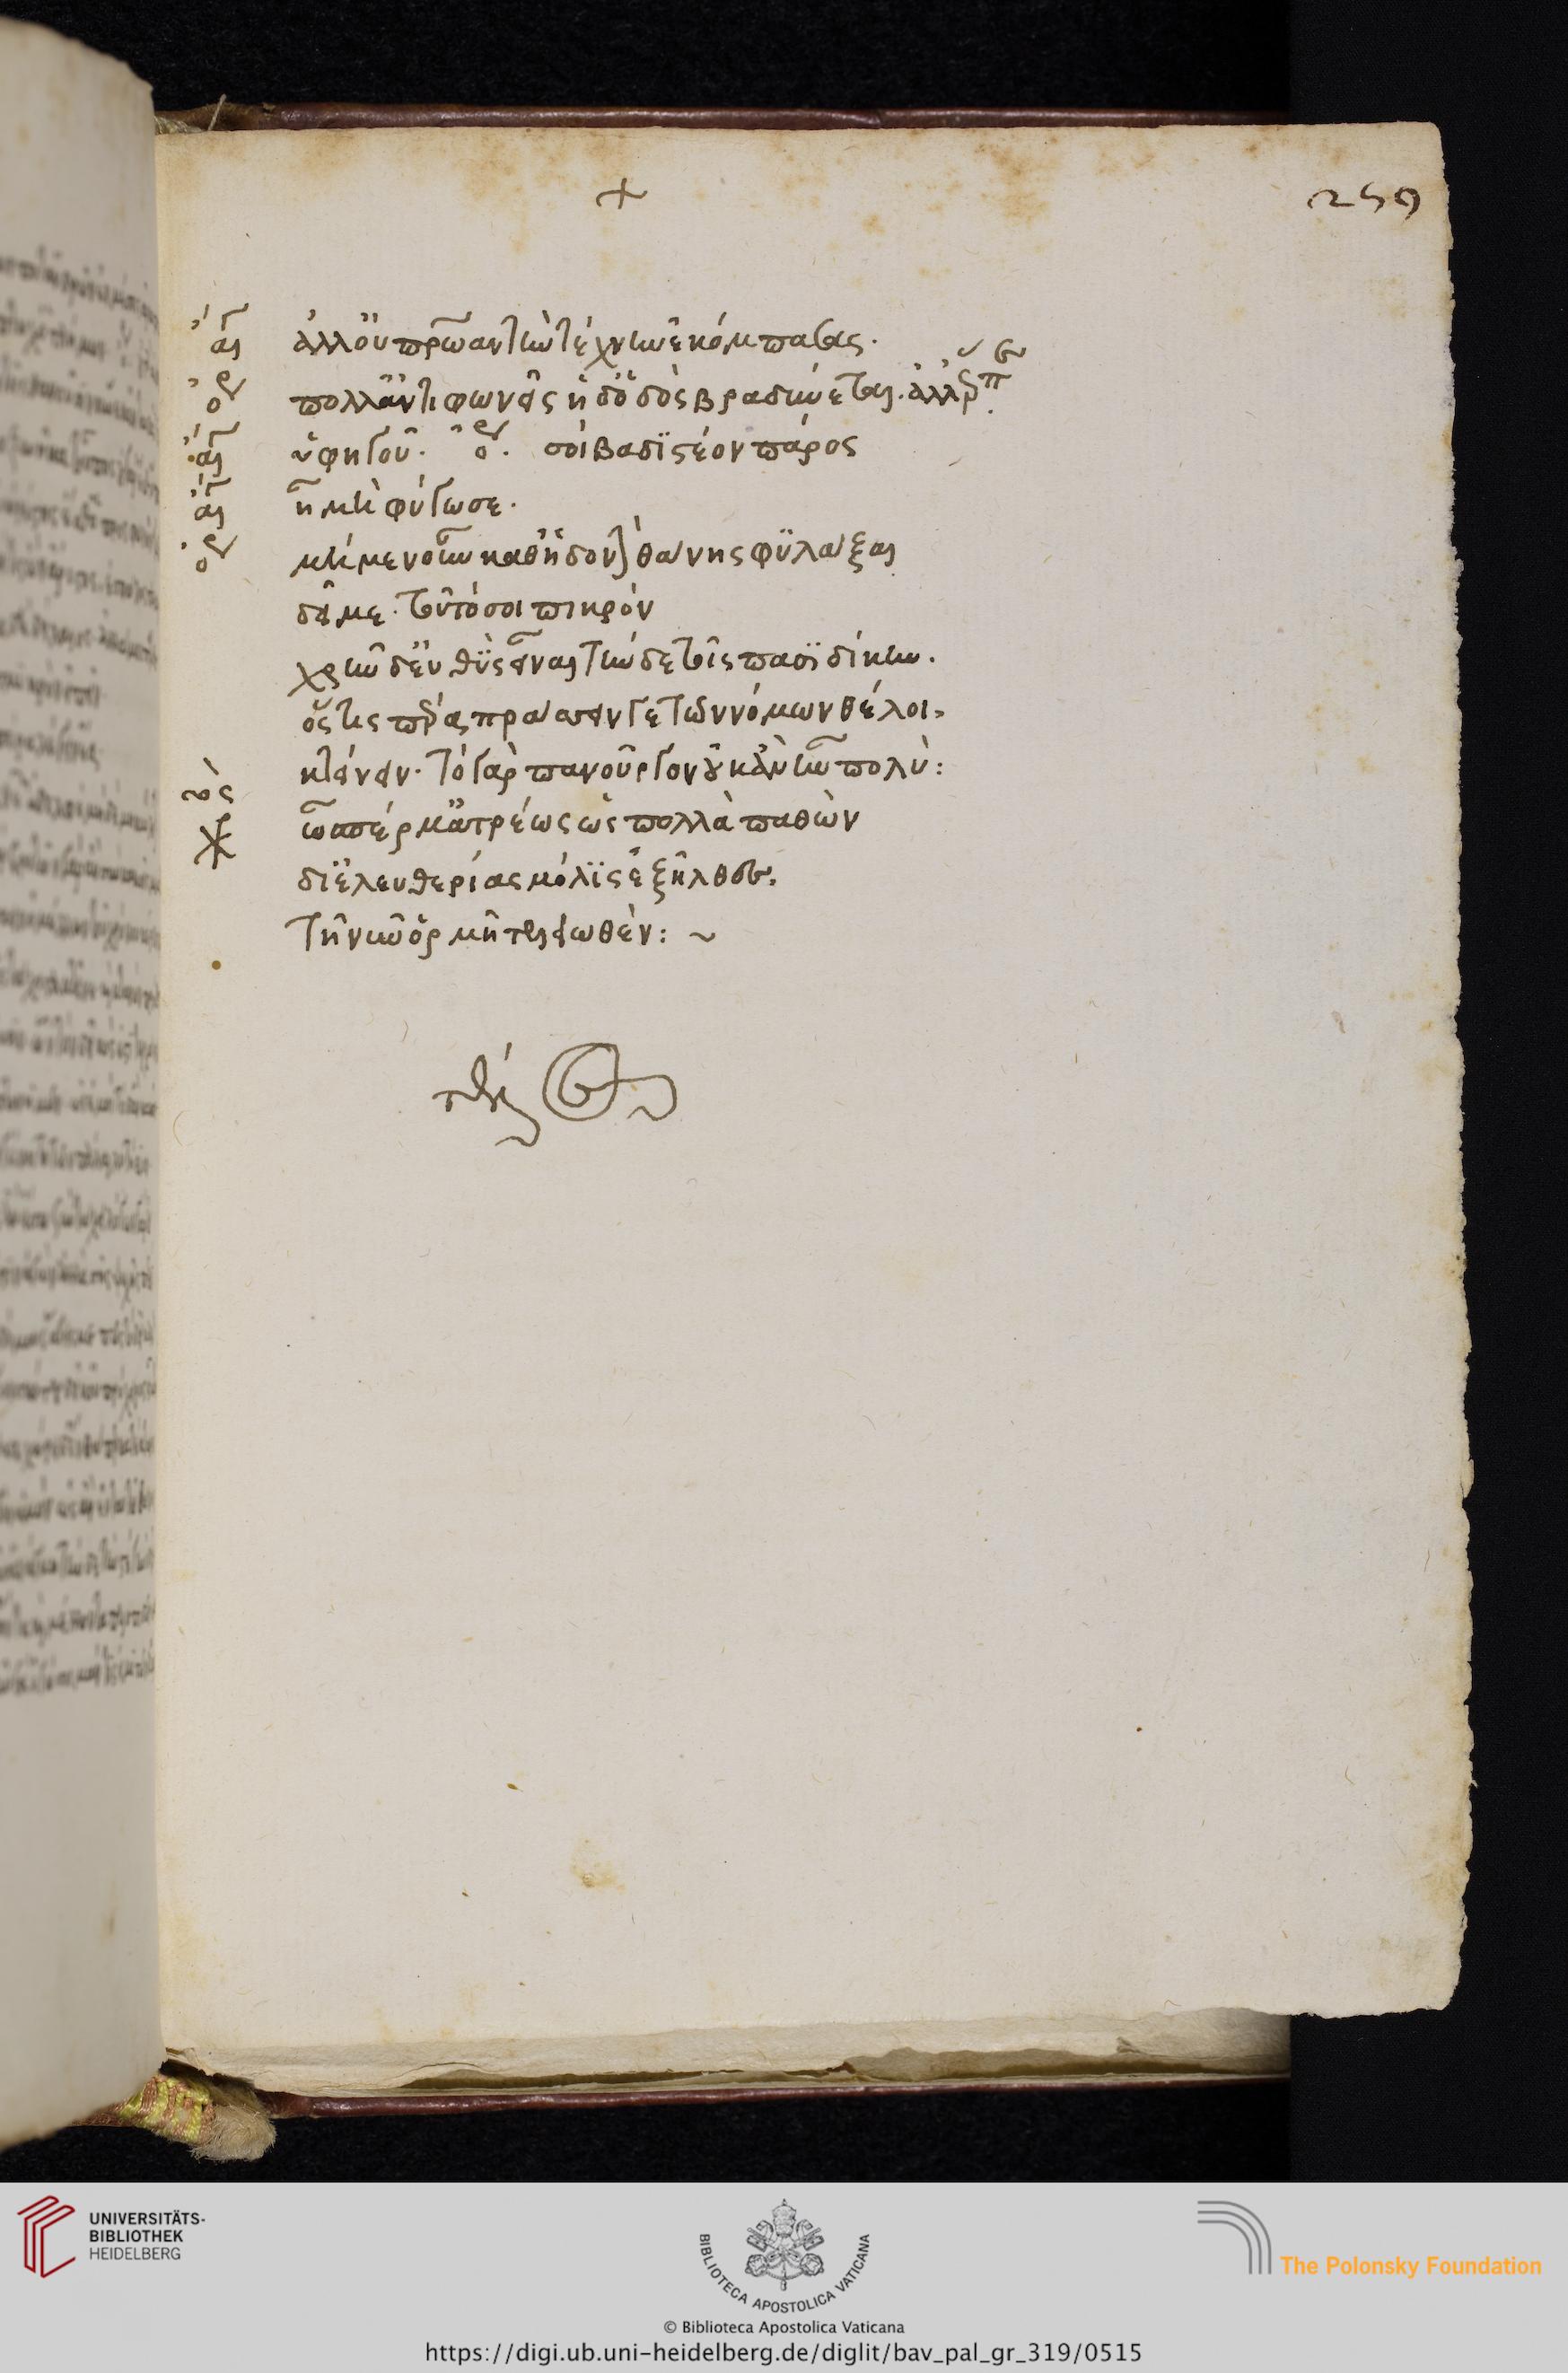 +
259
αἴγ ἀλλ' οὐ πρώαν τὴν τέχνην ἐκόμπασας.
ὀρ πολλ' ἀντιφωνεῖς ἡ δ' ὁδὸς βραδύνεται. ἀλλ' ἕρπε
αἴγ ὑφηγοῦ. ὀρ. σοὶ βαδιστέον πάρος
αἴγ ἦ μὴ φύγω σε.
ὀρ μὴ μὲν οὖν καθ' ἡδονὴν θάνης φυλάξαι
δεῖ με. τοῦτό σοι πικρόν
χρῆν δ' εὐθὺς εἶναι τήνδε τοῖς πᾶσι δίκην.
ὅστις πέρα πράσσειν γε τῶν νόμων θέλοι,
κτείνειν. τὸ γὰρ πανοῦργον οὐκ ἂν ἦν πολύ:
χος ὦ σπέρμ' ἀτρέως ὡς πολλὰ παθὼν
δι' ἐλευθερίας μόλις ἐξῆλθες,
τῆ νῦν ὁρμῆ τελεωθέν: ~
UNIVERSITÄTS-
BIBLIOTHEK
HEIDELBERG
BIBLIOTECA APOSTOLICA VATICANA
The Polonsky Foundation
© Biblioteca Apostolica Vaticana
https://digi.ub.uni-heidelberg.de/diglit/bav_pal_gr_319/0515